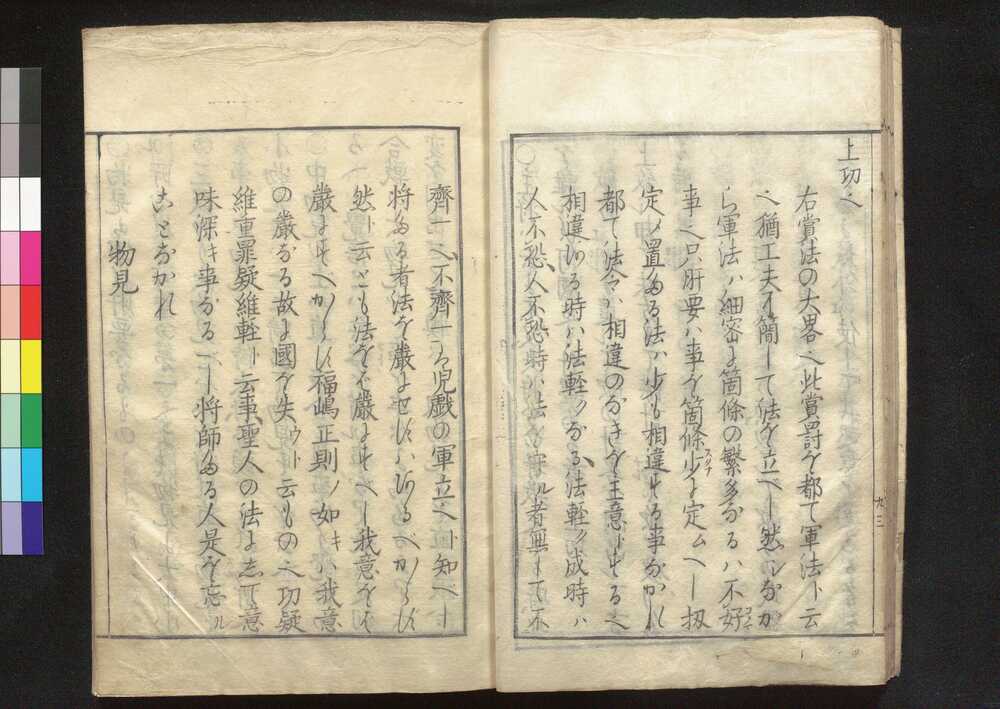 上功也
右賞法の大畧也此賞罸を都て軍法ト云
へ猶工夫了簡して法を立べし然シながか
ら軍法ハ細密に箇條の繁多なるハ不好
事也只肝要ハ事を箇條少スクナに定ムへし扨
定メ置たる法ハ少も相違する事なかれ
都て法令ハ相違のなきを主意トする也
相違ある時ハ法軽クなる法軽ク成時ハ
人不恐人不恐時ハ法を守ル者無して不
齊一也不齊一ハ児戯の軍立也ト知べし
将たる者法を嚴にせずハあるべからず
然ト云とも法をバ嚴にすべし我意をバ
嚴にすべからず福嶋正則ノ如キハ我意
の嚴なる故に國を失ウト云もの也功疑
維重罪疑維軽ト云事聖人の法にして意
味深キ事なるべし将師たる人是を忘ル
ることなかれ
物見
九三